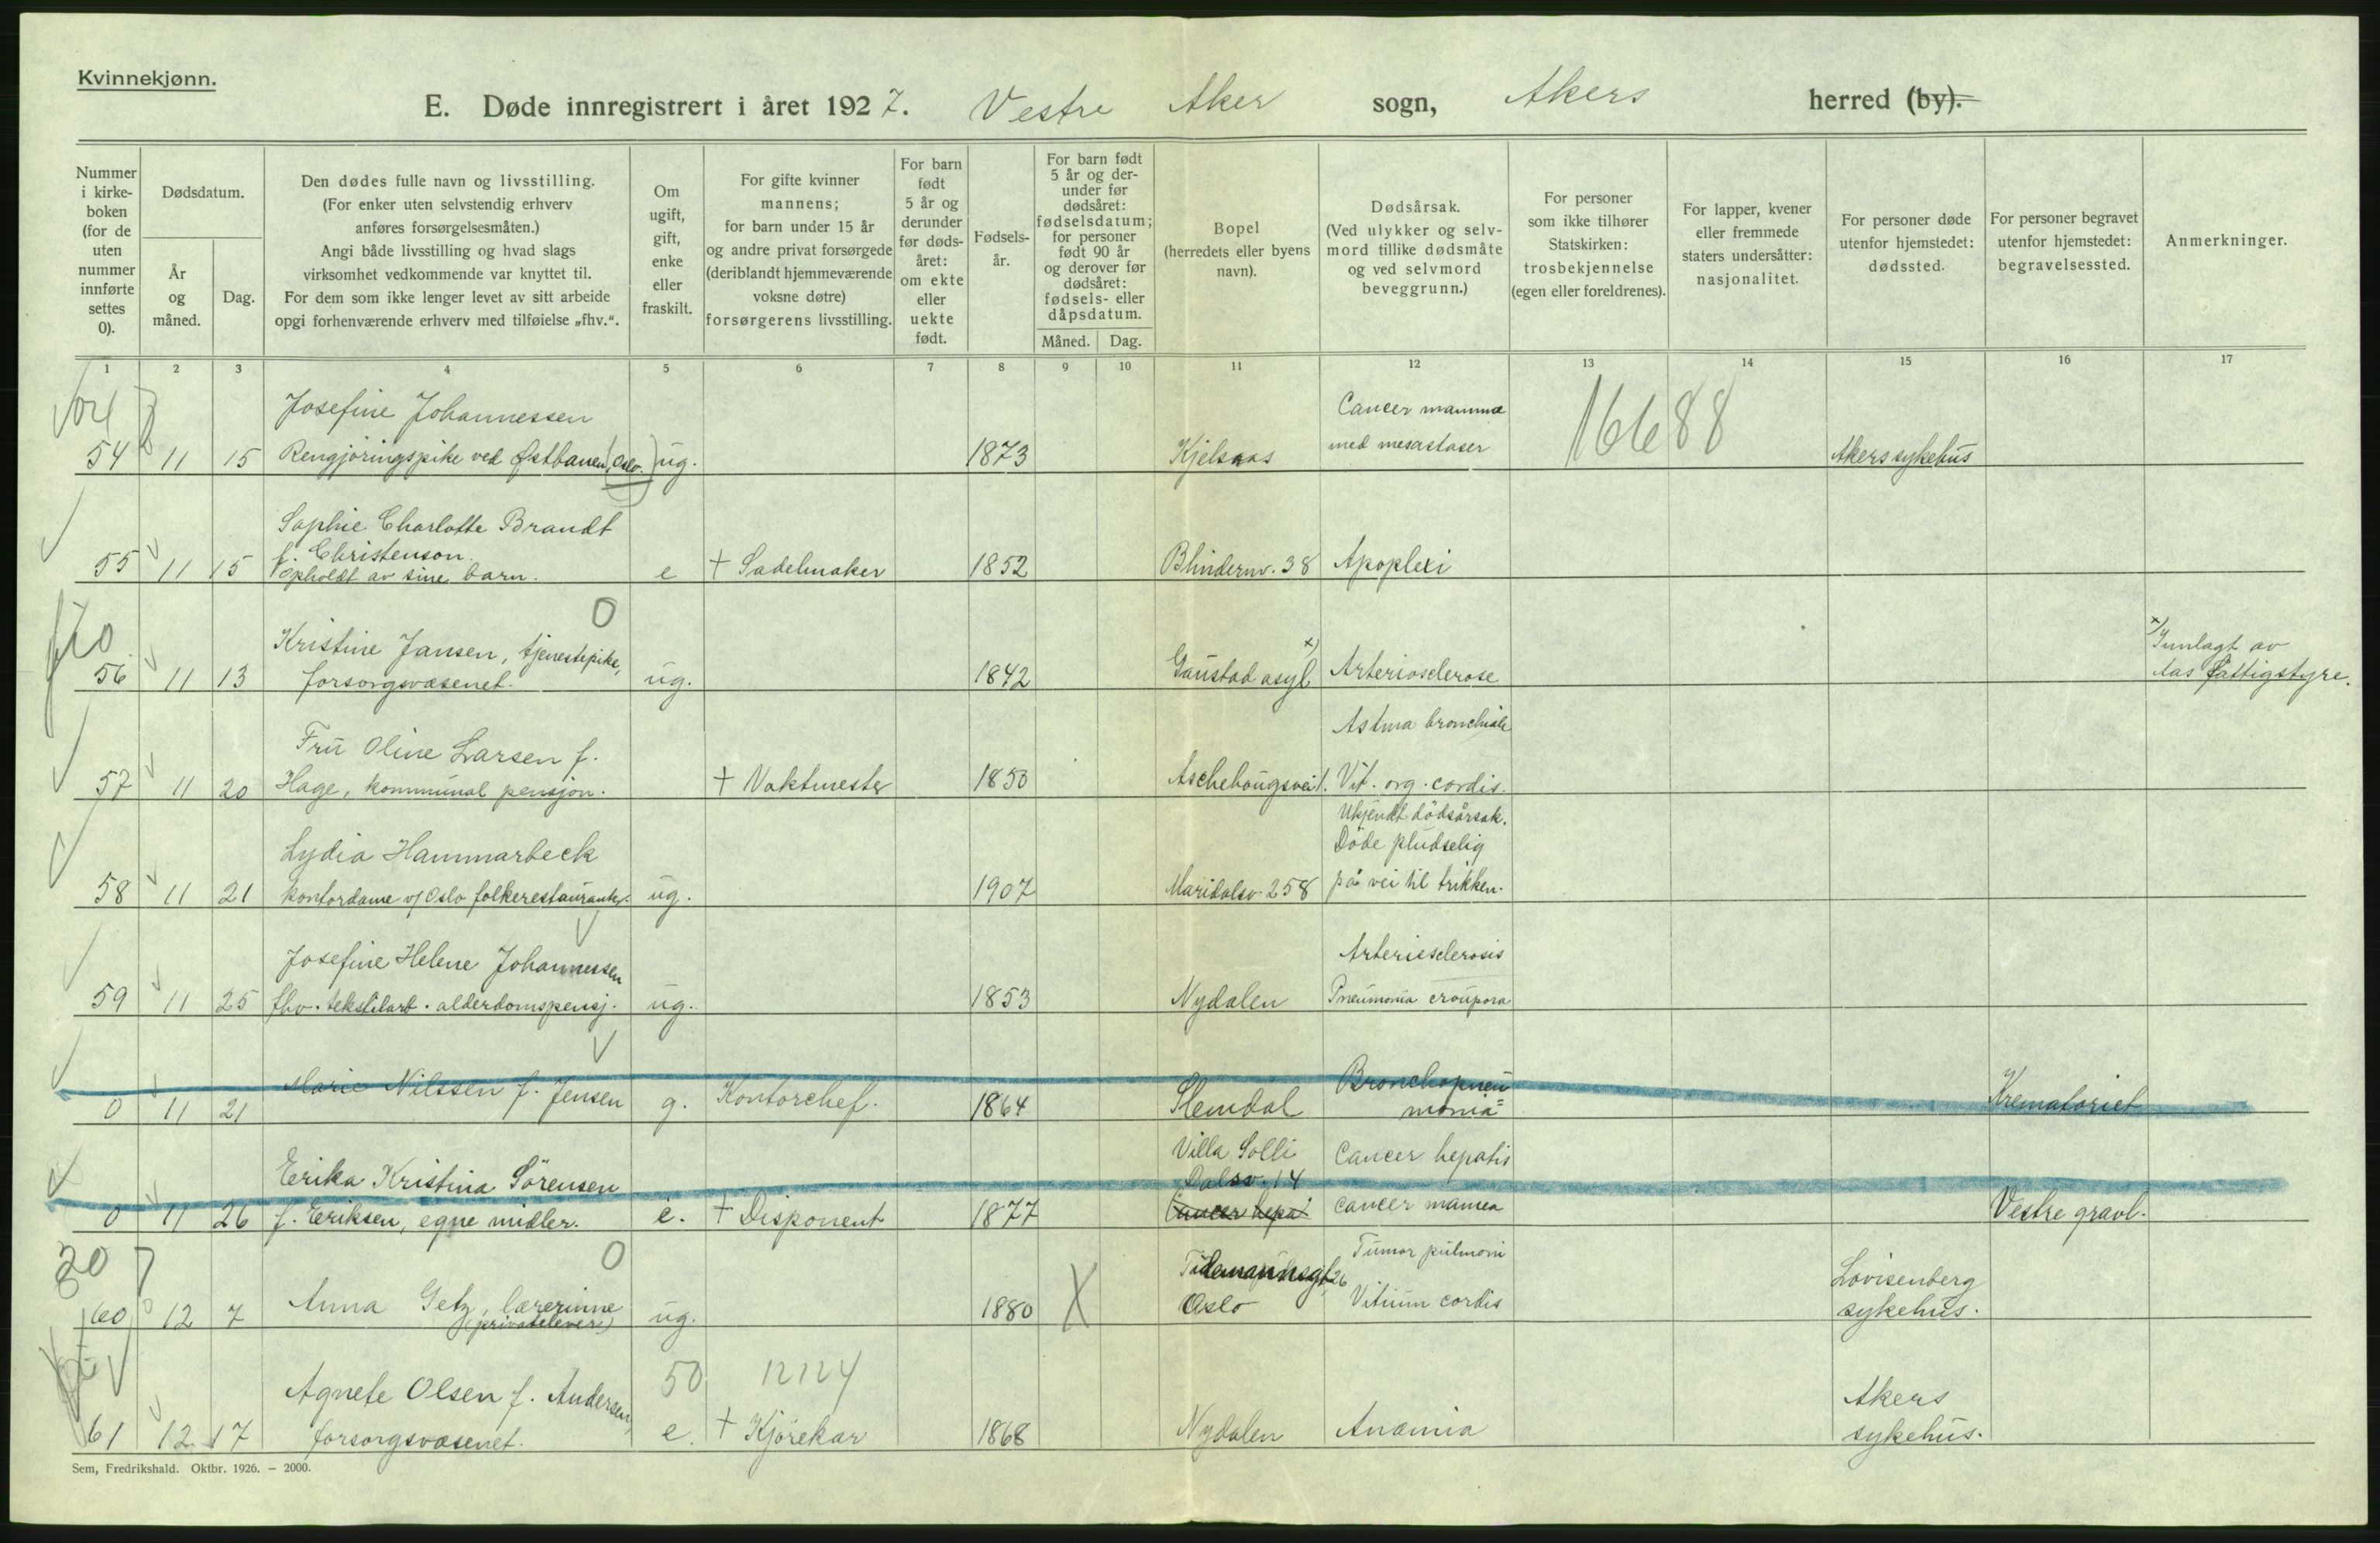 Kvinnekjønn.
E. Døde innregistrert i året 1927. Vestre Aker sogn, Akers herred (by).
Nummer
i kirke-
boken
(for de
uten
nummer
innførte
settes
0).
Dødsdatum.
År
og
måned.
Dag.
Den dødes fulle navn og livsstilling.
(For enker uten selvstendig erhverv
anføres forsørgelsesmåten.)
Angi både livsstilling og hvad slags
virksomhet vedkommende var knyttet til.
For dem som ikke lenger levet av sitt arbeide
opgi forhenværende erhverv med tilføielse „fhv.“.
Om
ugift,
gift,
enke
eller
fraskilt.
For gifte kvinner
mannens;
for barn under 15 år
og andre privat forsørgede
(deriblandt hjemmeværende
voksne døtre)
forsørgerens livsstilling.
For barn
født
5 år og
derunder
før døds-
året:
om ekte
eller
uekte
født.
Fødsels-
år.
For barn født
5 år og der-
under før
dødsåret:
fødselsdatum;
for personer
født 90 år
og derover før
dødsåret:
fødsels- eller
dåpsdatum.
Måned. Dag.
Bopel
(herredets eller byens
navn).
Dødsårsak.
(Ved ulykker og selv-
mord tillike dødsmåte
og ved selvmord
beveggrunn.)
For personer
som ikke tilhører
Statskirken:
trosbekjennelse
(egen eller foreldrenes).
For lapper, kvener
eller fremmede
staters undersåtter:
nasjonalitet.
For personer døde
utenfor hjemstedet:
dødssted.
For personer begravet
utenfor hjemstedet:
begravelsessted.
Anmerkninger.
1 2 3 4 5 6 7 8 9 10 11 12 13 14 15 16 17
Josefine Johannessen Cancer mammæ 16688
54 11 15 Rengjøringspike ved Østbanen (Oslo.) ug. 1873 Kjelsaas med mesastaser Akers sykehus
Sophie Charlotte Brandt
f. Christenson.
55 11 15 Opholdt av sine barn. e + Sadelmaker 1852 Blindernv. 38 Apoplexi
0
Kristine Jansen, tjenestepike, x) x) Innlagt av
56 11 13 forsorgsvæsenet. ug. 1842 Gaustad asyl Arteriosclerose Aas Fattigstyre.
Fru Oline Larsen f. Astma bronchiale
57 11 20 Hage, kommunal pensjon. + Vaktmester 1850 Aschehougsvei 1. Vit. org. cordis.
Ukjendt dødsårsak.
Lydia Hammarbeck Døde pludselig
58 11 21 kontordame v/ Oslo folkerestauranter. ug. 1907 Maridalsv. 258 på vei til trikken.
Josefine Helene Johannessen Arteriesclerosis
59 11 25 fhv. tekstilarb. alderdomspensj. ug. 1853 Nydalen Pneumonia croupora
Marie Nilssen f. Jensen Bronchopneu
0 11 21 g. Kontorchef. 1864 Slemdal monia Krematoriet
Villa Solli Cancer hepatis
Erika Kristina Sörensen Dalsv. 14
0 11 26 f. Eriksen, egne midler. e. + Disponent 1877 Cancer hepat cancer mamea Vestre gravl.
20 7 0 Tidemannsgt. 26 Tumor pulmoni Lovisenberg
60 12 7 Anna Getz, lærerinne ug. 1880 X Oslo Vitium cordis sykehus.
(privatelever)
50 12124
Agnete Olsen f. Andersen, Akers
61 12 17 forsorgsvæsenet. e. + Kjörekar 1868 Nydalen Anæmia sykehus.
Sem, Fredrikshald. Oktbr. 1926. – 2000.